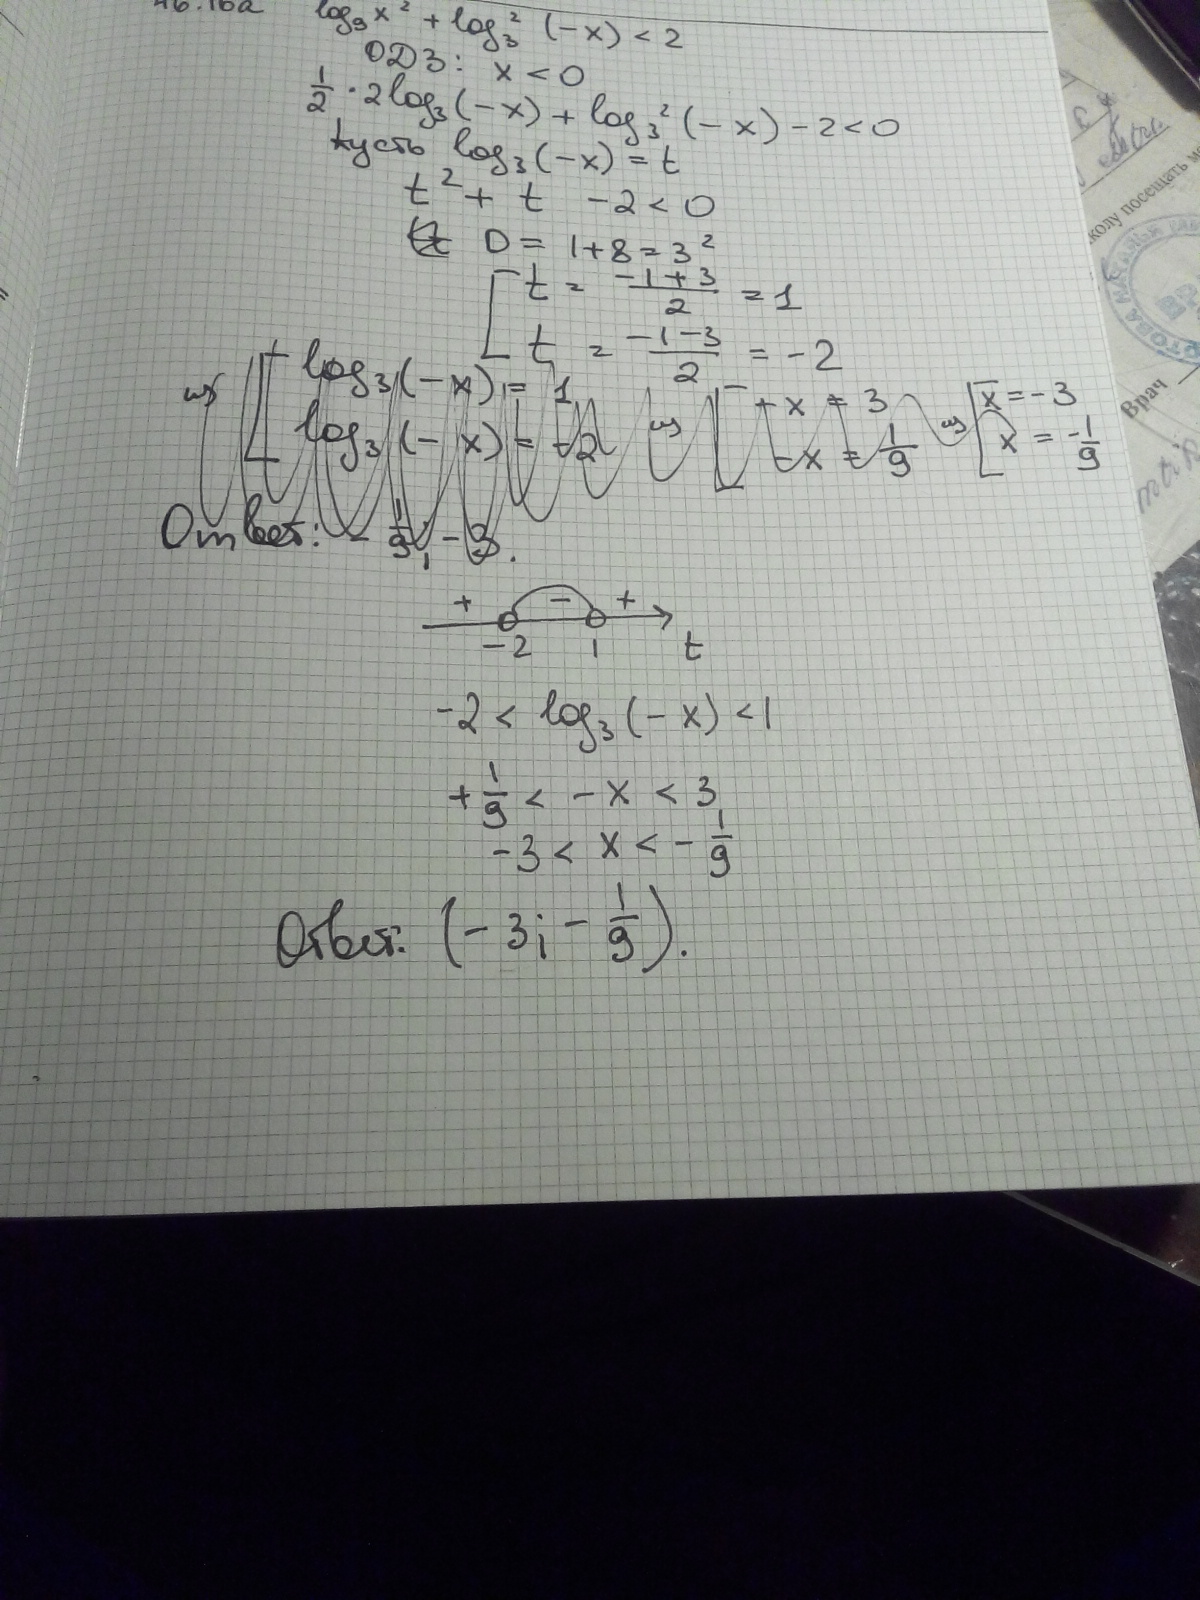 46.16а log₉x² + log₃²(-x) < 2
ОДЗ: x < 0
1/2 · 2log₃(-x) + log₃²(-x) - 2 < 0
Пусть log₃(-x) = t
t² + t - 2 < 0
D = 1 + 8 = 3²
t = (-1 + 3)/2 = 1
t = (-1 - 3)/2 = -2
log₃(-x) = 1
log₃(-x) = -2
-x = 3
-x = 1/9
x = -3
x = -1/9
Ответ: -1/9; -3.
+ - +
-2 1 t
-2 < log₃(-x) < 1
+1/9 < -x < 3
-3 < x < -1/9
Ответ: (-3; -1/9).
колу посещать
Врач